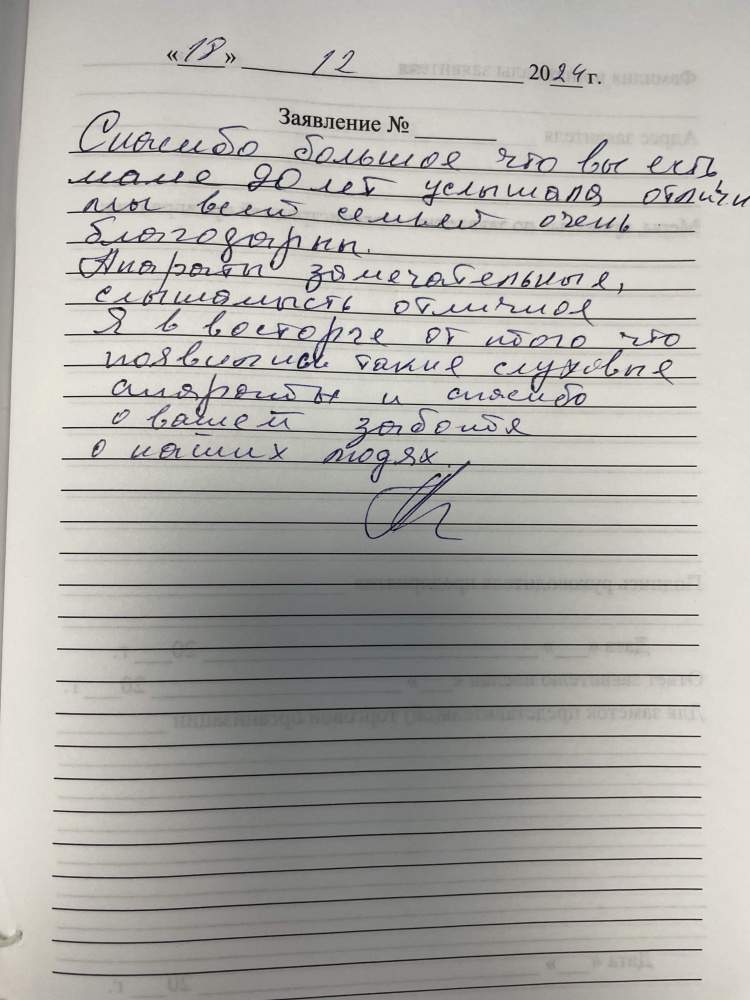 «18» 12 2024 г.
Заявление №
Спасибо большое что вы есть
маме 90 лет услышала отличн
мы всей семьей очень
благодарны.
Апараты замечательные,
слышамысть отличное
Я в восторге от того что
появились такие слуховые
апараты и спасибо
о вашей заботя
о наших людях.